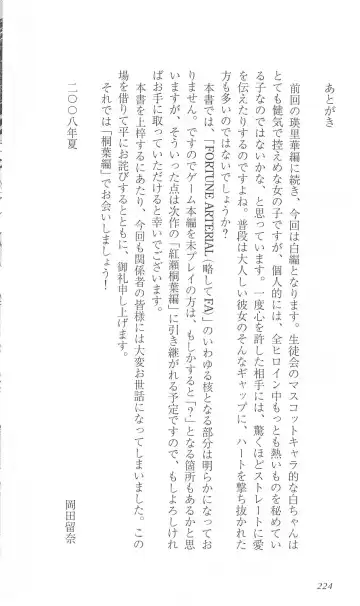 あとがき
前回の瑛里華編に続き、今回は白編となります。生徒会のマスコットキャラ的な白ちゃんは
とても健気で控えめな女の子ですが、個人的には、全ヒロイン中もっとも熱いものを秘めてい
る子なのではないかな、と思っています。一度心を許した相手には、驚くほどストレートに愛
を伝えたりするのですよね。普段は大人しい彼女のそんなギャップに、ハートを撃ち抜かれた
方も多いのではないでしょうか？
本書では、「FORTUNE ARTERIAL（略してFA）」のいわゆる核となる部分は明らかになってお
りません。ですのでゲーム本編を未プレイの方は、もしかすると「？」となる箇所もあるかと思
いますが、そういった点は次作の「紅瀬桐葉編」に引き継がれる予定ですので、もしよろしけれ
ばお手に取っていただけると幸いでございます。
本書を上梓するにあたり、今回も関係者の皆様には大変お世話になってしまいました。この
場を借りて平にお詫びするとともに、御礼申し上げます。
それでは「桐葉編」でお会いしましょう！
二〇〇八年夏
岡田留奈
224